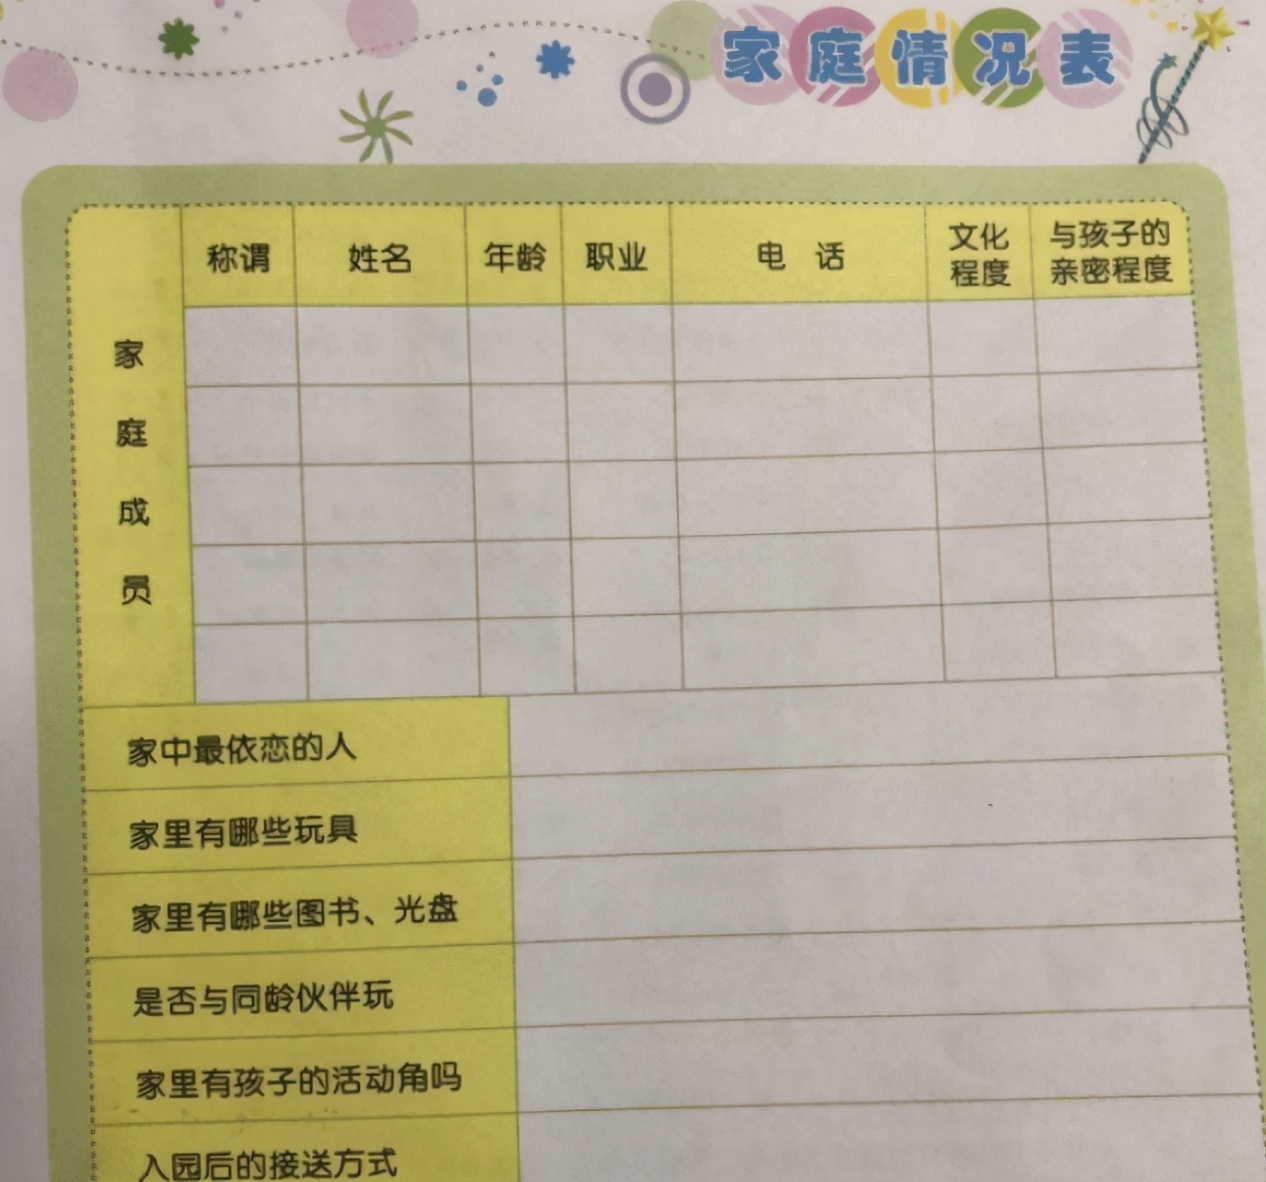 家庭情况表
称谓 姓名 年龄 职业 电话 文化程度 与孩子的亲密程度
家庭成员
家中最依恋的人
家里有哪些玩具
家里有哪些图书、光盘
是否与同龄伙伴玩
家里有孩子的活动角吗
入园后的接送方式